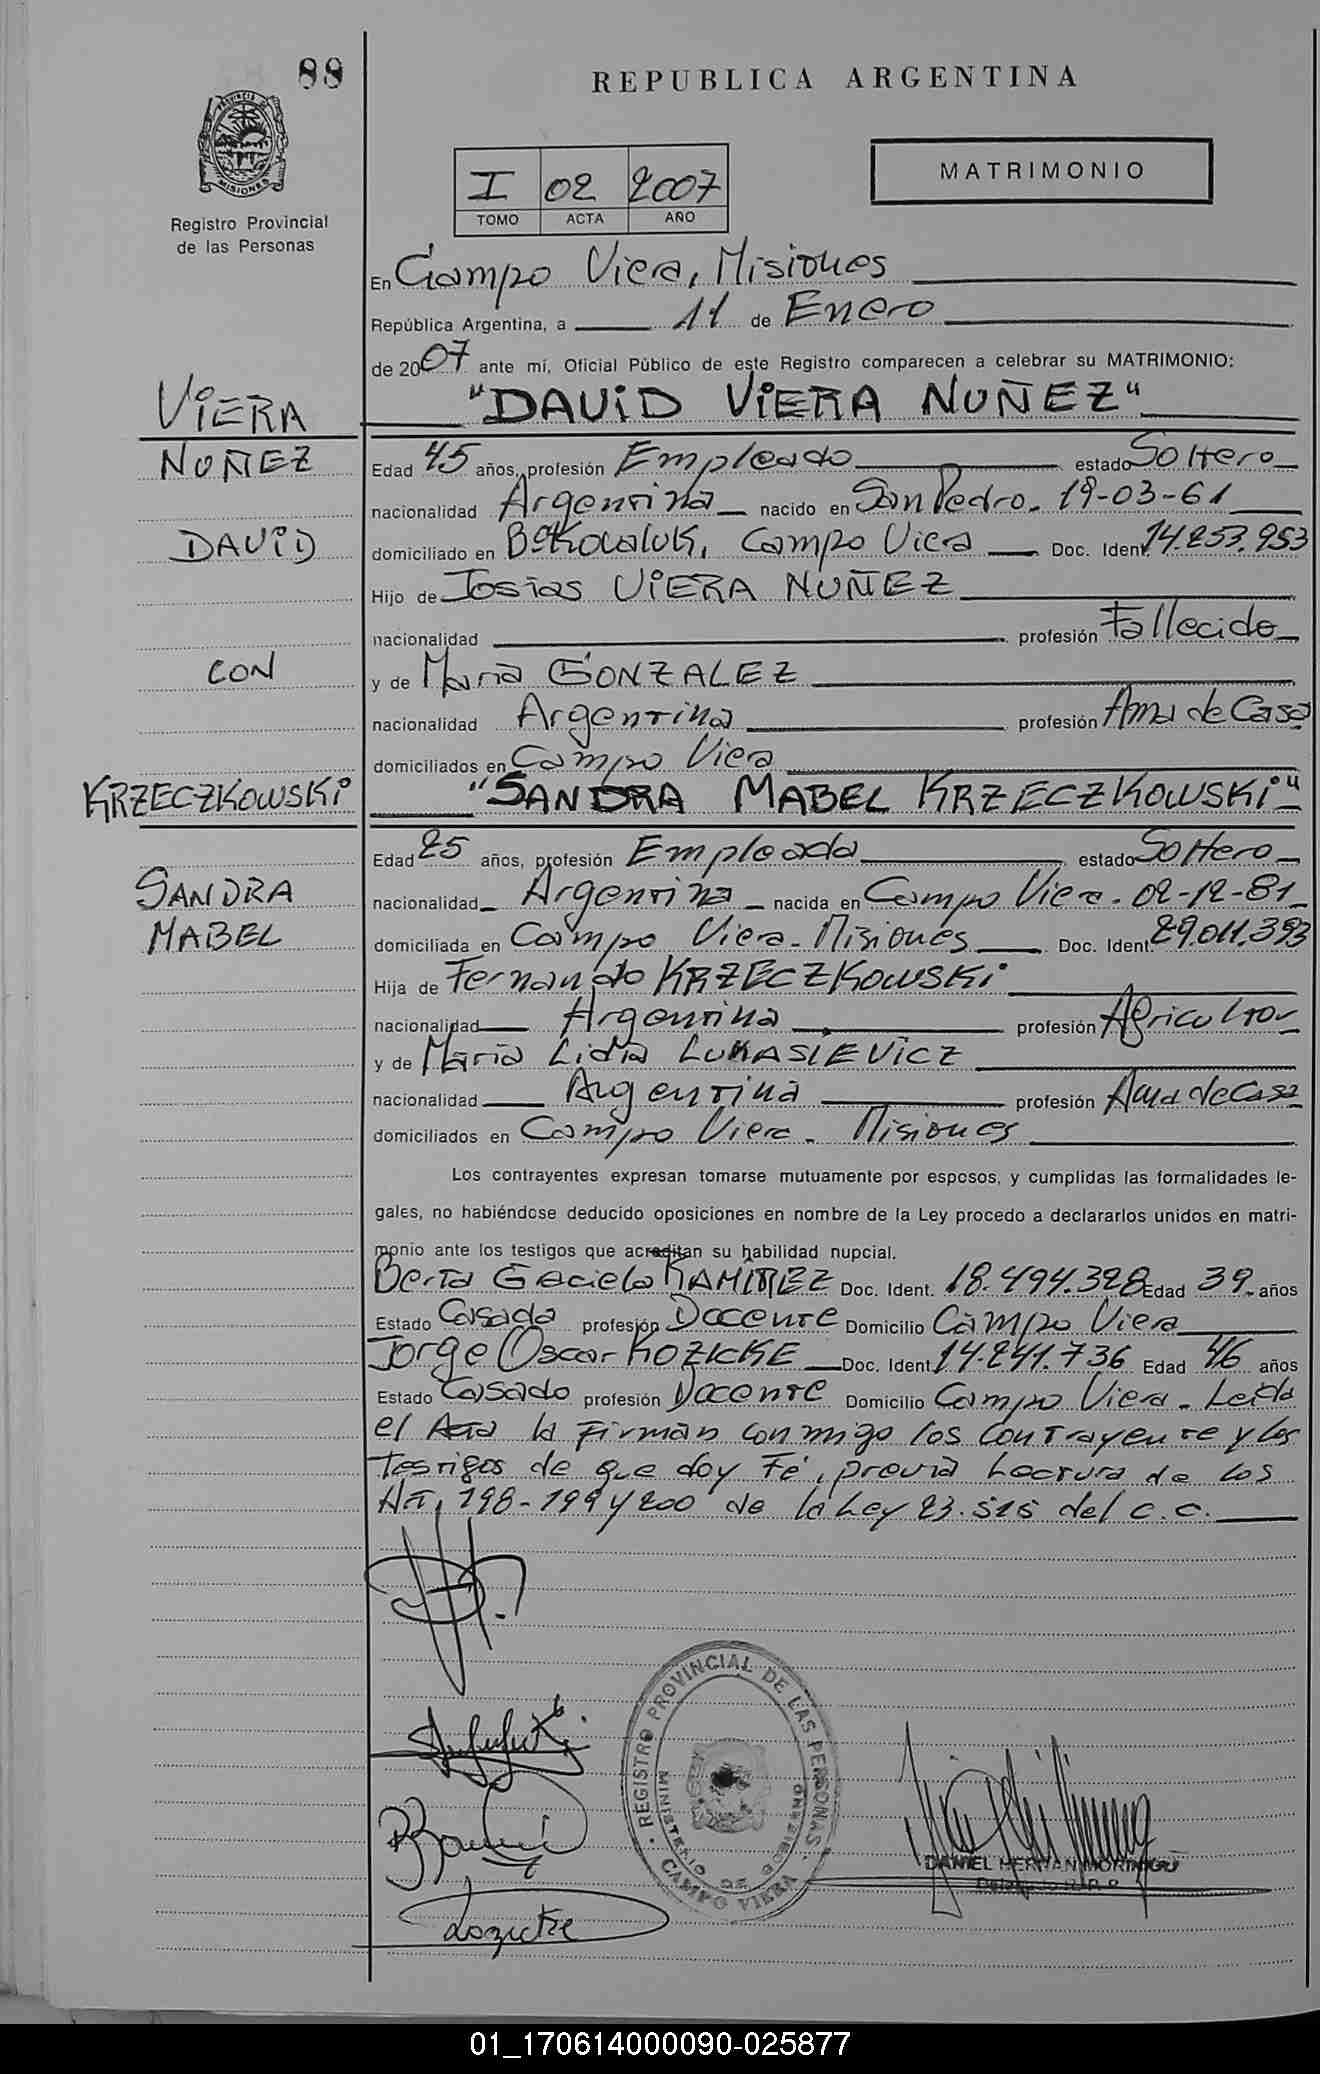 88
REPUBLICA ARGENTINA
MATRIMONIO
I 02 2007
TOMO ACTA AÑO
PROVINCIA DE MISIONES
Registro Provincial
de las Personas
En Campo Viera, Misiones
República Argentina, a 11 de Enero
de 2007 ante mí, Oficial Público de este Registro comparecen a celebrar su MATRIMONIO:
VIERA
"DAVID VIERA NUÑEZ"
NUÑEZ
Edad 45 años, profesión Empleado estado Soltero
nacionalidad Argentina nacido en San Pedro - 19-03-61
DAVID
domiciliado en Bº Kovaluk, Campo Viera Doc. Ident. 14.253.953
Hijo de Josias VIERA NUÑEZ
nacionalidad profesión Fallecido
CON
y de Maria GONZALEZ
nacionalidad Argentina profesión Ama de Casa
domiciliados en Campo Viera
KRZECZKOWSKI
"SANDRA MABEL KRZECZKOWSKI"
Edad 25 años, profesión Empleada estado Soltero
SANDRA
nacionalidad Argentina nacida en Campo Viera - 02-12-81
MABEL
domiciliada en Campo Viera - Misiones Doc. Ident. 29.011.393
Hija de Fernando KRZECZKOWSKI
nacionalidad Argentina profesión Agricultor
y de Maria Lidia LUKASIEVICZ
nacionalidad Argentina profesión Ama de Casa
domiciliados en Campo Viera - Misiones
Los contrayentes expresan tomarse mutuamente por esposos, y cumplidas las formalidades le-
gales, no habiéndose deducido oposiciones en nombre de la Ley procedo a declararlos unidos en matri-
monio ante los testigos que acreditan su habilidad nupcial.
Berta Graciela RAMIREZ Doc. Ident. 18.494.328 Edad 39 años
Estado Casada profesión Docente Domicilio Campo Viera
Jorge Oscar KOZICKE Doc. Ident. 14.241.736 Edad 46 años
Estado Casado profesión Docente Domicilio Campo Viera - Leida
el Acta la Firman conmigo los Contrayente y los
Testigos de que doy Fé, previa Lectura de los
Art. 198-199 y 200 de la Ley 23.515 del C.C.
REGISTRO PROVINCIAL DE LAS PERSONAS
MINISTERIO DE GOBIERNO
CAMPO VIERA
Kozicke
DANIEL HERNAN MORINIGO
01_170614000090-025877